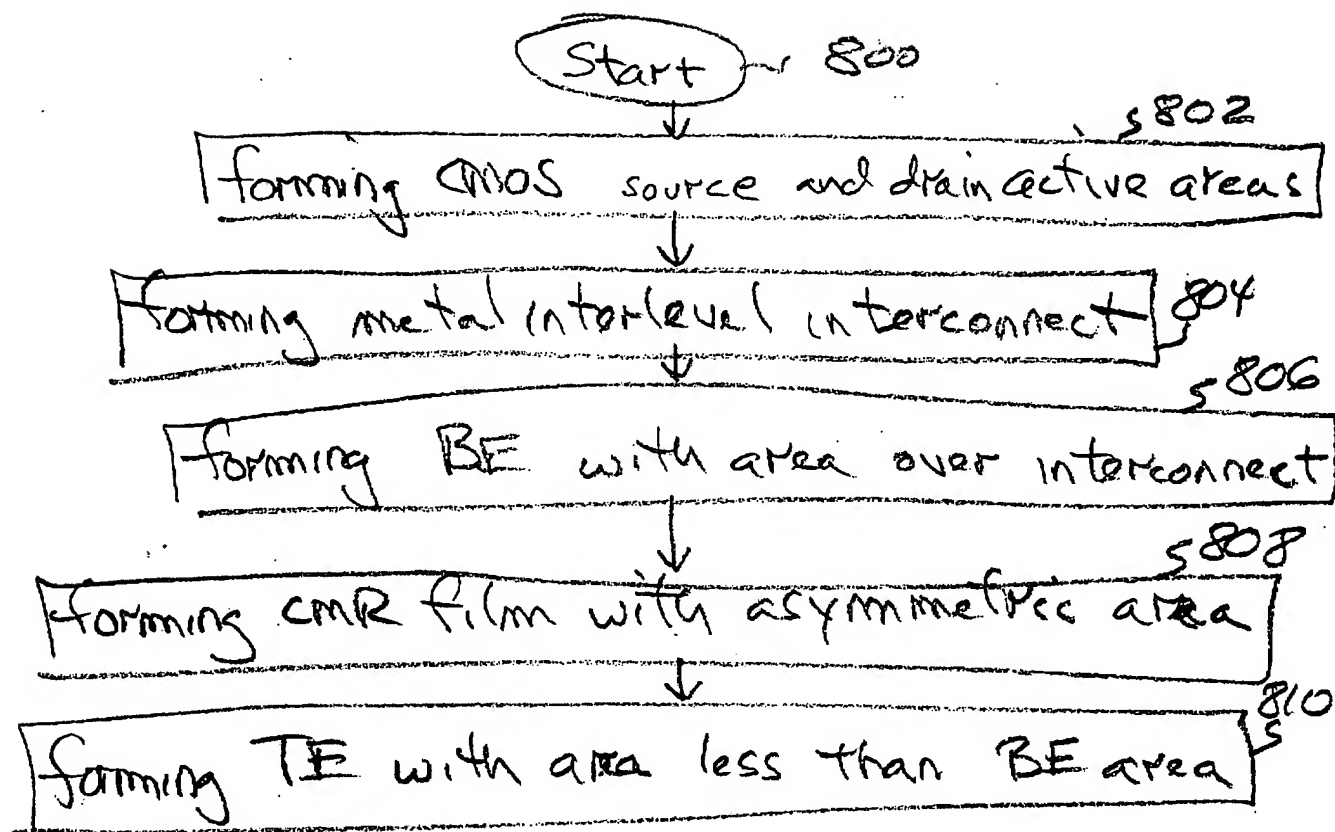 Start 800
802
forming CMOS source and drain active areas
forming metal interlevel interconnect 804
806
forming BE with area over interconnect
808
forming CMR film with asymmetric area
810
forming TE with area less than BE area